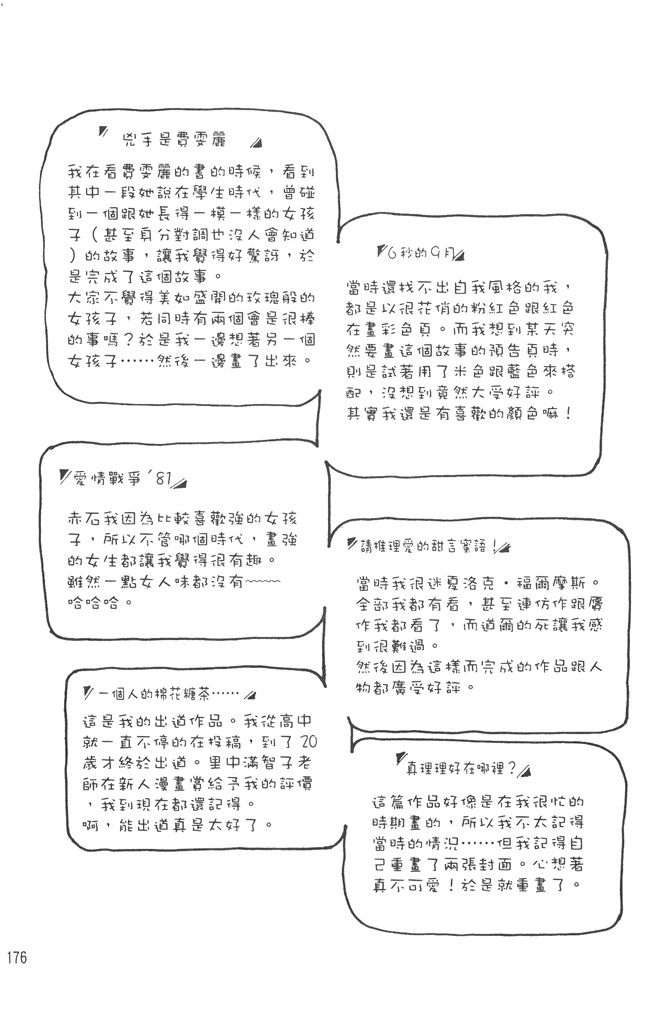 兇手是費雯麗
我在看費雯麗的書的時候，看到
其中一段她說在學生時代，曾碰
到一個跟她長得一模一樣的女孩
子（甚至身分對調也沒人會知道
）的故事，讓我覺得好驚訝，於
是完成了這個故事。
大家不覺得美如盛開的玫瑰般的
女孩子，若同時有兩個會是很棒
的事嗎？於是我一邊想著另一個
女孩子……然後一邊畫了出來。
6秒的9月
當時還找不出自我風格的我，
都是以很花俏的粉紅色跟紅色
在畫彩色頁。而我想到某天突
然要畫這個故事的預告頁時，
則是試著用了米色跟藍色來搭
配，沒想到竟然大受好評。
其實我還是有喜歡的顏色嘛！
愛情戰爭'81
赤石我因為比較喜歡強的女孩
子，所以不管哪個時代，畫強
的女生都讓我覺得很有趣。
雖然一點女人味都沒有~~~
哈哈哈。
請推理愛的甜言蜜語！
當時我很迷夏洛克·福爾摩斯。
全部我都有看，甚至連仿作跟贗
作我都看了，而道爾的死讓我感
到很難過。
然後因為這樣而完成的作品跟人
物都廣受好評。
一個人的棉花糖茶……
這是我的出道作品。我從高中
就一直不停的在投稿，到了20
歲才終於出道。里中滿智子老
師在新人漫畫賞給予我的評價
，我到現在都還記得。
啊，能出道真是太好了。
真理理好在哪裡？
這篇作品好像是在我很忙的
時期畫的，所以我不太記得
當時的情況……但我記得自
己重畫了兩張封面。心想著
真不可愛！於是就重畫了。
176